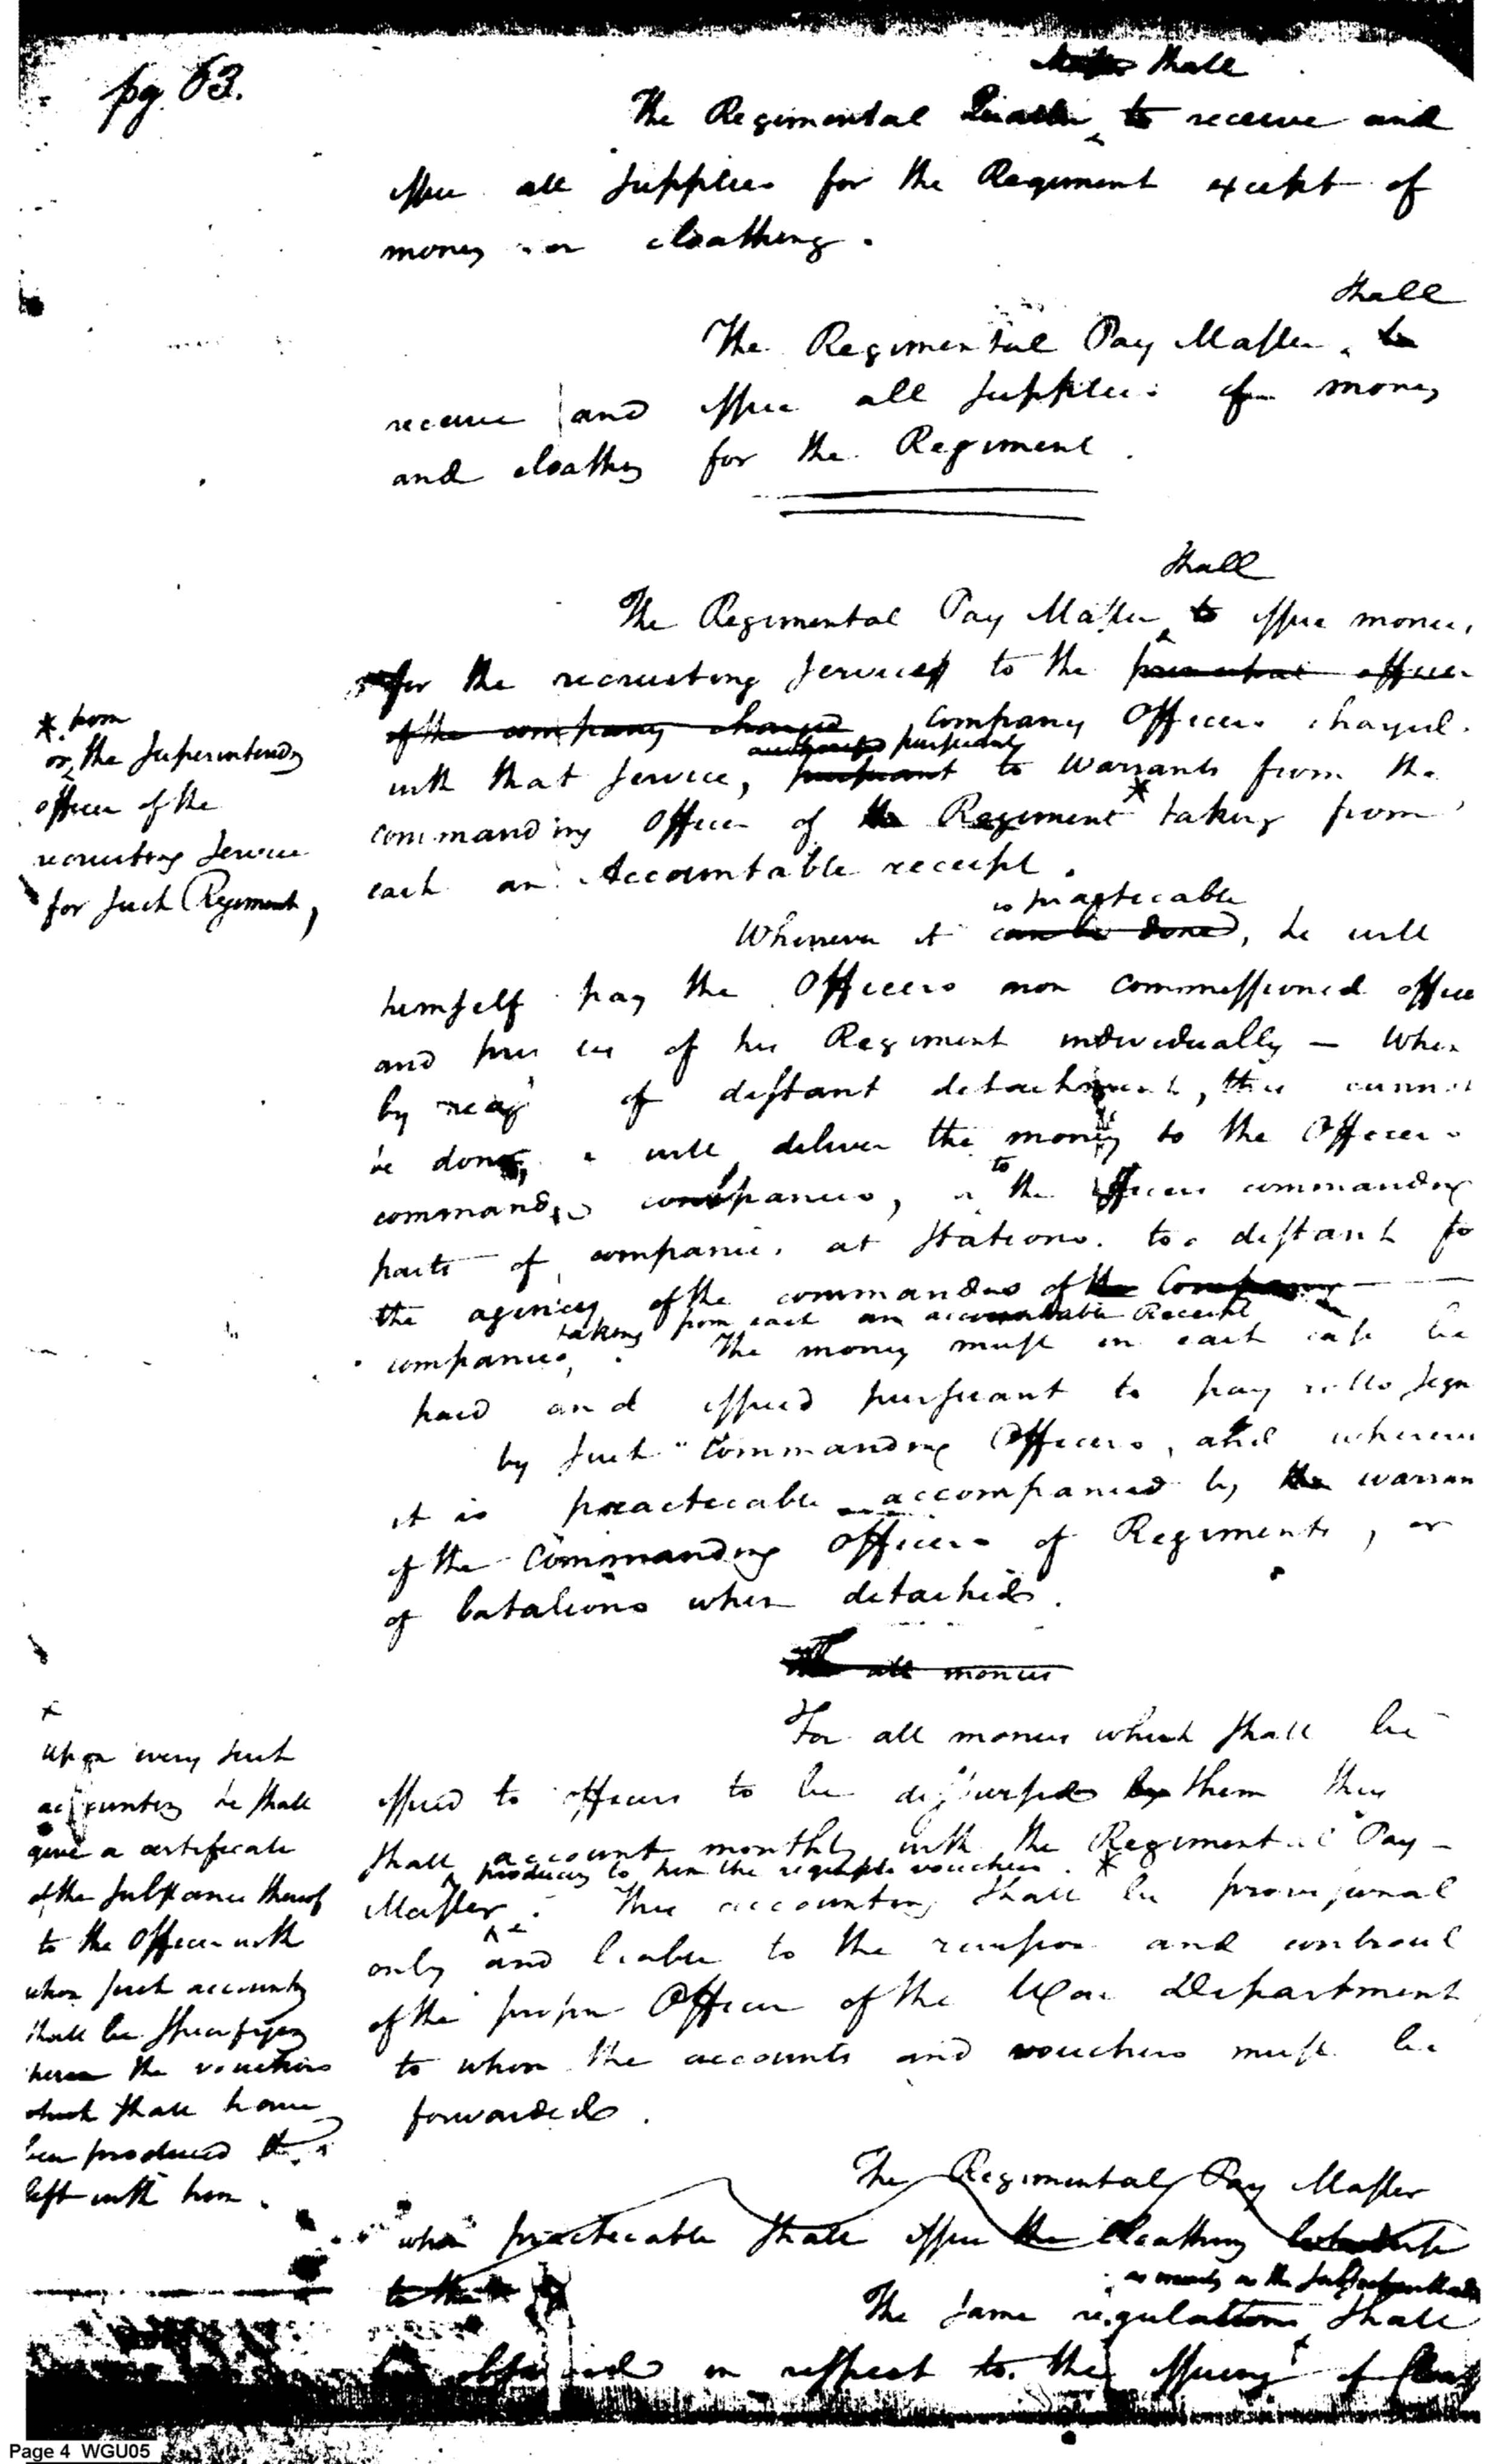 pg. 63.
Master shall
The Regimental Quarter to receive and
issue all supplies for the Regiment except of
money or cloathing.
shall
The Regimental Pay Master to
receive and issue all supplies of money
and cloathing for the Regiment.
shall
The Regimental Pay Master to issue monies
for the recruiting service to the principal officer
of the company charged company Officers charged
with that service, pursuant to warrants from the
pursuant
commanding Officer of the Regiment * taking from
each an Accountable receipt.
* from
or the superintending
officer of the
recruiting service
for such Regiment,
is practicable
Whenever it can be done, he will
himself pay the Officers non commissioned office
and privates of his Regiment individually — When
by reason of distant detachment, this cannot
be done, he will deliver the money to the Officers
commanding companies, or to the Officers commanding
parts of companies at stations too distant for
the agency of the commanders of the Company
taking from each an accountable Receipt
companies. The money must in each case be
paid and issued pursuant to pay rolls sign
by such Commanding Officers, and wherever
it is practicable accompanied by the warran
of the Commanding Officers of Regiments, or
of batalions when detached.
all monies
For all monies which shall be
issued to officers to be disbursed by them they
shall account monthly with the Regimental Pay-
producing to him the requisite vouchers. *
Master. This accounting shall be provisional
only and liable to the revision and controul
of the proper Officer of the War Department
to whom the accounts and vouchers must be
forwarded.
x
upon every such
accounting he shall
give a certificate
of the substance thereof
to the Officer with
whom such accounting
shall be specifying
therein the vouchers
which shall have
been produced &
left with him.
The Regimental Pay Master
when practicable shall issue the cloathing
to the
as nearly as the
The same regulations shall
be observed in respect to the issuing of
Page 4 WGU05